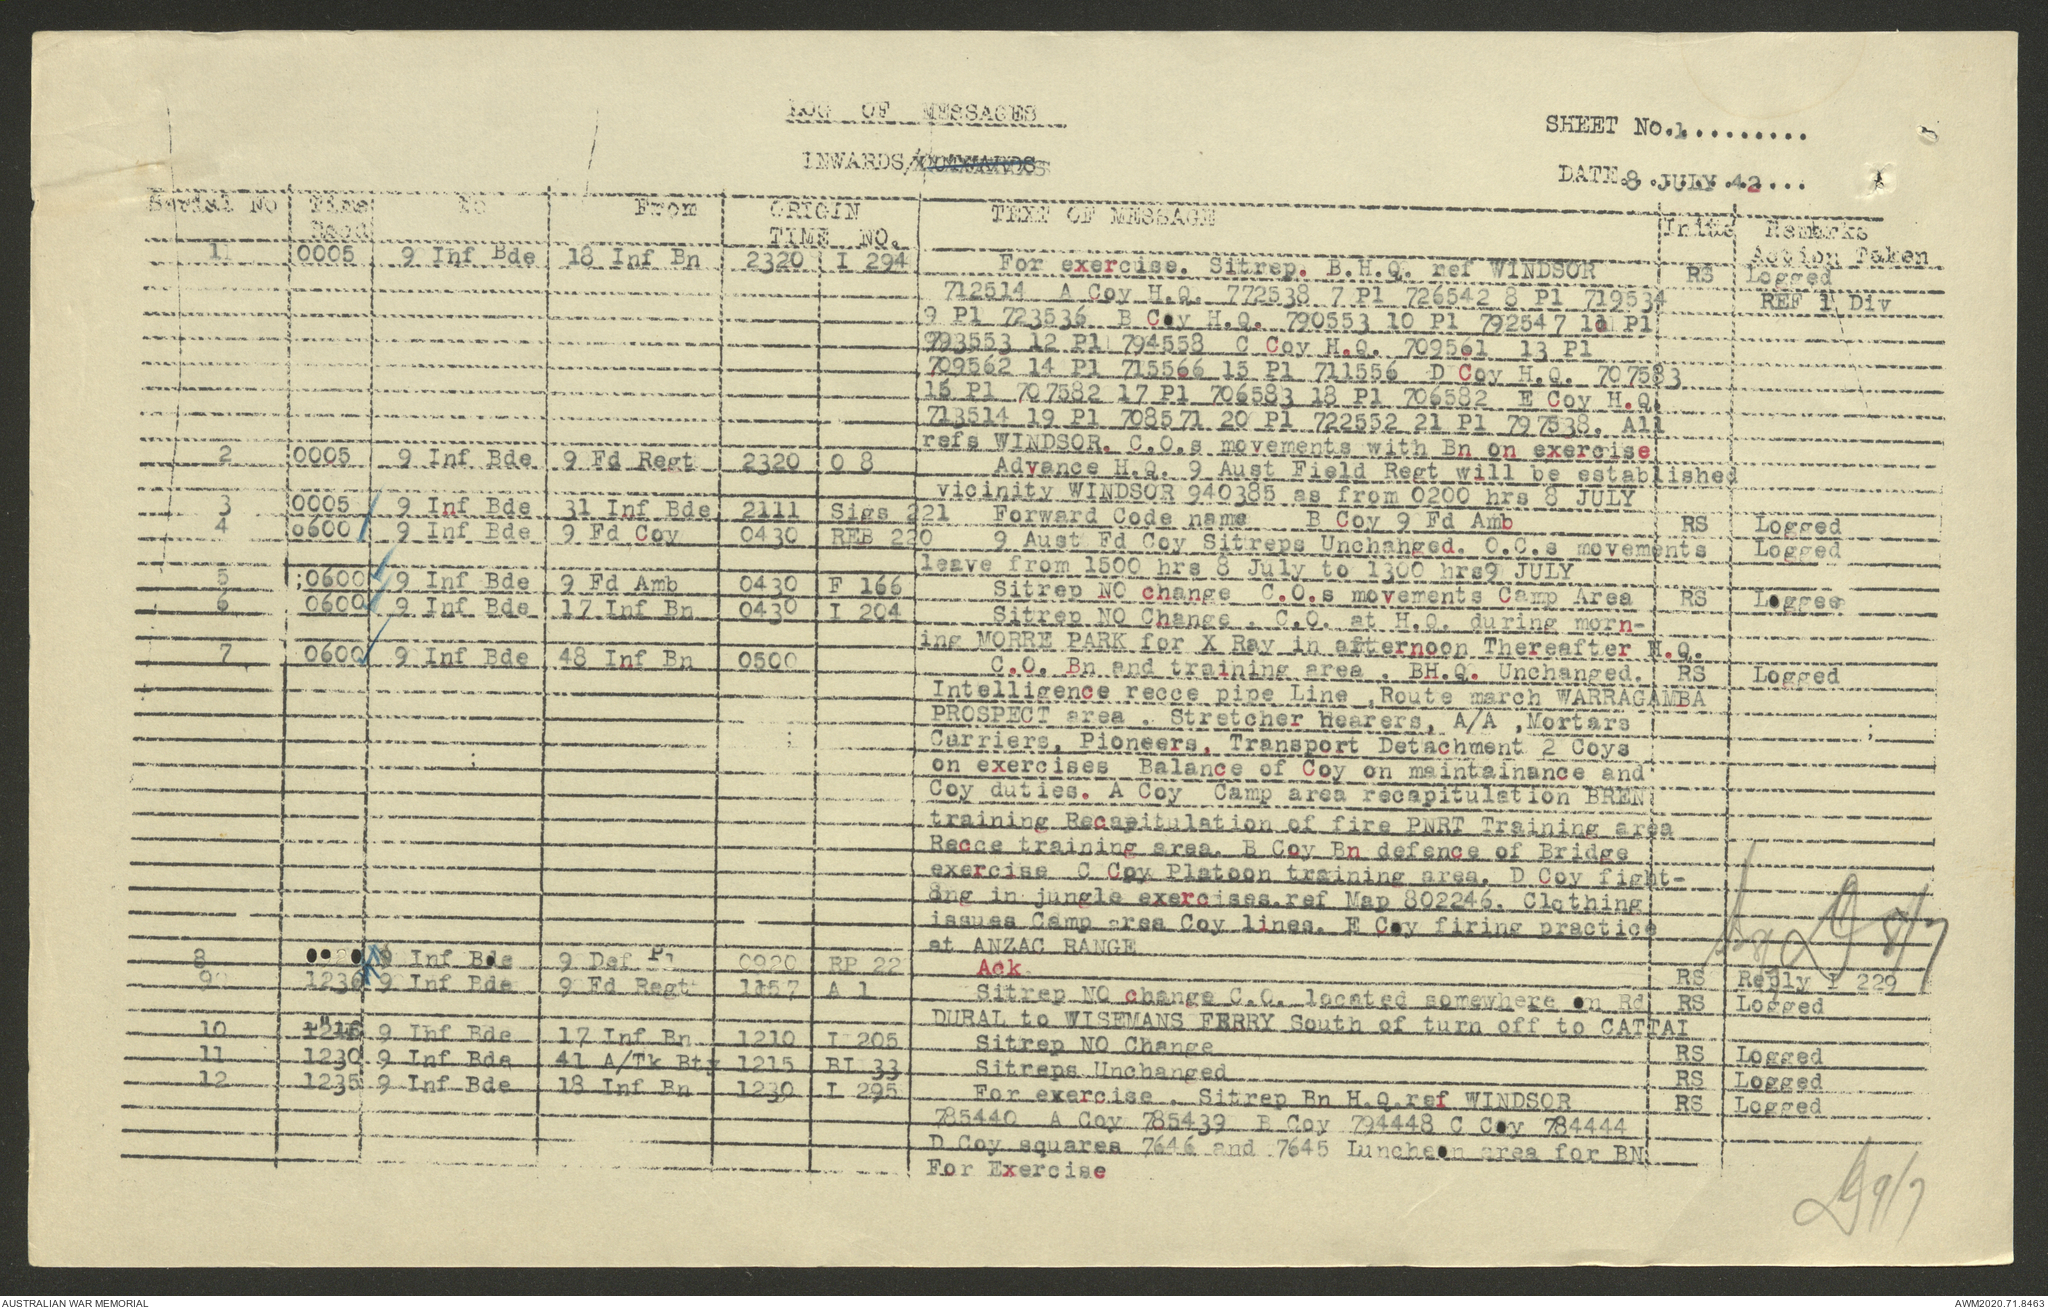 LOG OF MESSAGES
SHEET No.1.........
INWARDS/OUTWARDS
DATE.8 JULY 42....
Serial No Time Recd To From ORIGIN TIME NO. TEXT OF MESSAGE Initls Remarks Action Taken
1 0005 9 Inf Bde 18 Inf Bn 2320 I 294 For exercise. Sitrep. B.H.Q. ref WINDSOR RS Logged
712514 A Coy H.Q. 772538 7 Pl 726542 8 Pl 719534 REF 1 Div
9 Pl 723536 B Coy H.Q. 790553 10 Pl 792547 11 Pl
793553 12 Pl 794558 C Coy H.Q. 709561 13 Pl
709562 14 Pl 715566 15 Pl 711556 D Coy H.Q. 707583
16 Pl 707582 17 Pl 706583 18 Pl 706582 E Coy H.Q.
713514 19 Pl 708571 20 Pl 722552 21 Pl 797538. All
refs WINDSOR. C.O.s movements with Bn on exercise
2 0005 9 Inf Bde 9 Fd Regt 2320 O 8 Advance H.Q. 9 Aust Field Regt will be established
vicinity WINDSOR 940385 as from 0200 hrs 8 JULY
3 0005 9 Inf Bde 31 Inf Bde 2111 Sigs 221 Forward Code name B Coy 9 Fd Amb RS Logged
4 0600 9 Inf Bde 9 Fd Coy 0430 REB 220 9 Aust Fd Coy Sitreps Unchanged. O.C.s movements Logged
leave from 1500 hrs 8 July to 1300 hrs9 JULY
5 :0600 9 Inf Bde 9 Fd Amb 0430 F 166 Sitrep NO change C.O.s movements Camp Area RS Loggee
6 0600 9 Inf Bde 17 Inf Bn 0430 I 204 Sitrep NO Change . C.O. at H.Q. during morn-
ing MORRE PARK for X Ray in afternoon Thereafter H.Q.
7 0600 9 Inf Bde 48 Inf Bn 0500 C.O. Bn and training area . BH.Q. Unchanged. RS Logged
Intelligence recce pipe Line ,Route march WARRAGAMBA
PROSPECT area . Stretcher Bearers, A/A ,Mortars
Carriers, Pioneers, Transport Detachment 2 Coys
on exercises Balance of Coy on maintainance and
Coy duties. A Coy Camp area recapitulation BREN
training Recapitulation of fire PNRT Training area
Recce training area. B Coy Bn defence of Bridge
exercise C Coy Platoon training area. D Coy fight-
ing in jungle exercises.ref Map 802246. Clothing
issues Camp area Coy lines. E Coy firing practice
at ANZAC RANGE
8 9 Inf Bde 9 Def Pl 0920 RP 22 Ack RS Reply I 229
9 1236 9 Inf Bde 9 Fd Regt 1157 A 1 Sitrep NO change C.O. located somewhere on Rd RS Logged
DURAL to WISEMANS FERRY South of turn off to CATTAI
10 9 Inf Bde 17 Inf Bn 1210 I 205 Sitrep NO Change RS Logged
11 1230 9 Inf Bde 41 A/Tk Bty 1215 BI 33 Sitreps Unchanged RS Logged
12 1235 9 Inf Bde 18 Inf Bn 1230 I 295 For exercise . Sitrep Bn H.Q.ref WINDSOR RS Logged
785440 A Coy 785439 B Coy 794448 C Coy 784444
D Coy squares 7646 and 7645 Luncheon area for BN
For Exercise
8/7
9/7
AUSTRALIAN WAR MEMORIAL
AWM2020.71.8463